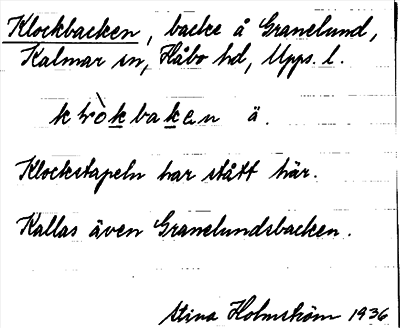 Klockbacken, backe å Granelund,
Kalmar sn, Håbo hd, Upps. l.
ä.
Klockstapeln har stått här.
Kallas även Granelundsbacken.
Stina Holmström 1936